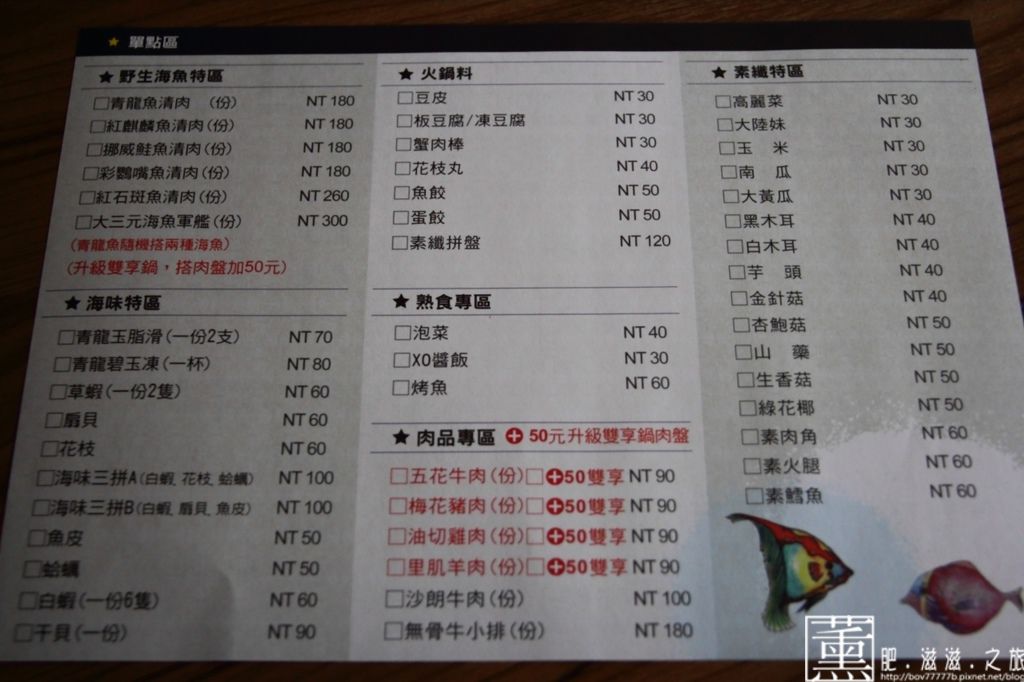 ★ 單點區
★ 野生海魚特區
□青龍魚清肉 (份) NT 180
□紅麒麟魚清肉(份) NT 180
□挪威鮭魚清肉(份) NT 180
□彩鸚嘴魚清肉(份) NT 180
□紅石斑魚清肉(份) NT 260
□大三元海魚軍艦(份) NT 300
(青龍魚隨機搭兩種海魚)
(升級雙享鍋，搭肉盤加50元)
★ 海味特區
□青龍玉脂滑(一份2支) NT 70
□青龍碧玉凍(一杯) NT 80
□草蝦(一份2隻) NT 60
□扇貝 NT 60
□花枝 NT 60
□海味三拼A(白蝦, 花枝, 蛤蠣) NT 100
□海味三拼B(白蝦, 扇貝, 魚皮) NT 100
□魚皮 NT 50
□蛤蠣 NT 50
□白蝦(一份6隻) NT 60
□干貝(一份) NT 90
★ 火鍋料
□豆皮 NT 30
□板豆腐/凍豆腐 NT 30
□蟹肉棒 NT 30
□花枝丸 NT 40
□魚餃 NT 50
□蛋餃 NT 50
□素纖拼盤 NT 120
★ 熟食專區
□泡菜 NT 40
□XO醬飯 NT 30
□烤魚 NT 60
★ 肉品專區 ✚ 50元升級雙享鍋肉盤
□五花牛肉(份)□✚50雙享 NT 90
□梅花豬肉(份)□✚50雙享 NT 90
□油切雞肉(份)□✚50雙享 NT 90
□里肌羊肉(份)□✚50雙享 NT 90
□沙朗牛肉(份) NT 100
□無骨牛小排(份) NT 180
★ 素纖特區
□高麗菜 NT 30
□大陸妹 NT 30
□玉 米 NT 30
□南 瓜 NT 30
□大黃瓜 NT 30
□黑木耳 NT 40
□白木耳 NT 40
□芋 頭 NT 40
□金針菇 NT 40
□杏鮑菇 NT 50
□山 藥 NT 50
□生香菇 NT 50
□綠花椰 NT 50
□素肉角 NT 60
□素火腿 NT 60
□素鱈魚 NT 60
薰 肥.滋滋.之旅
http://bov77777b.pixnet.net/blog